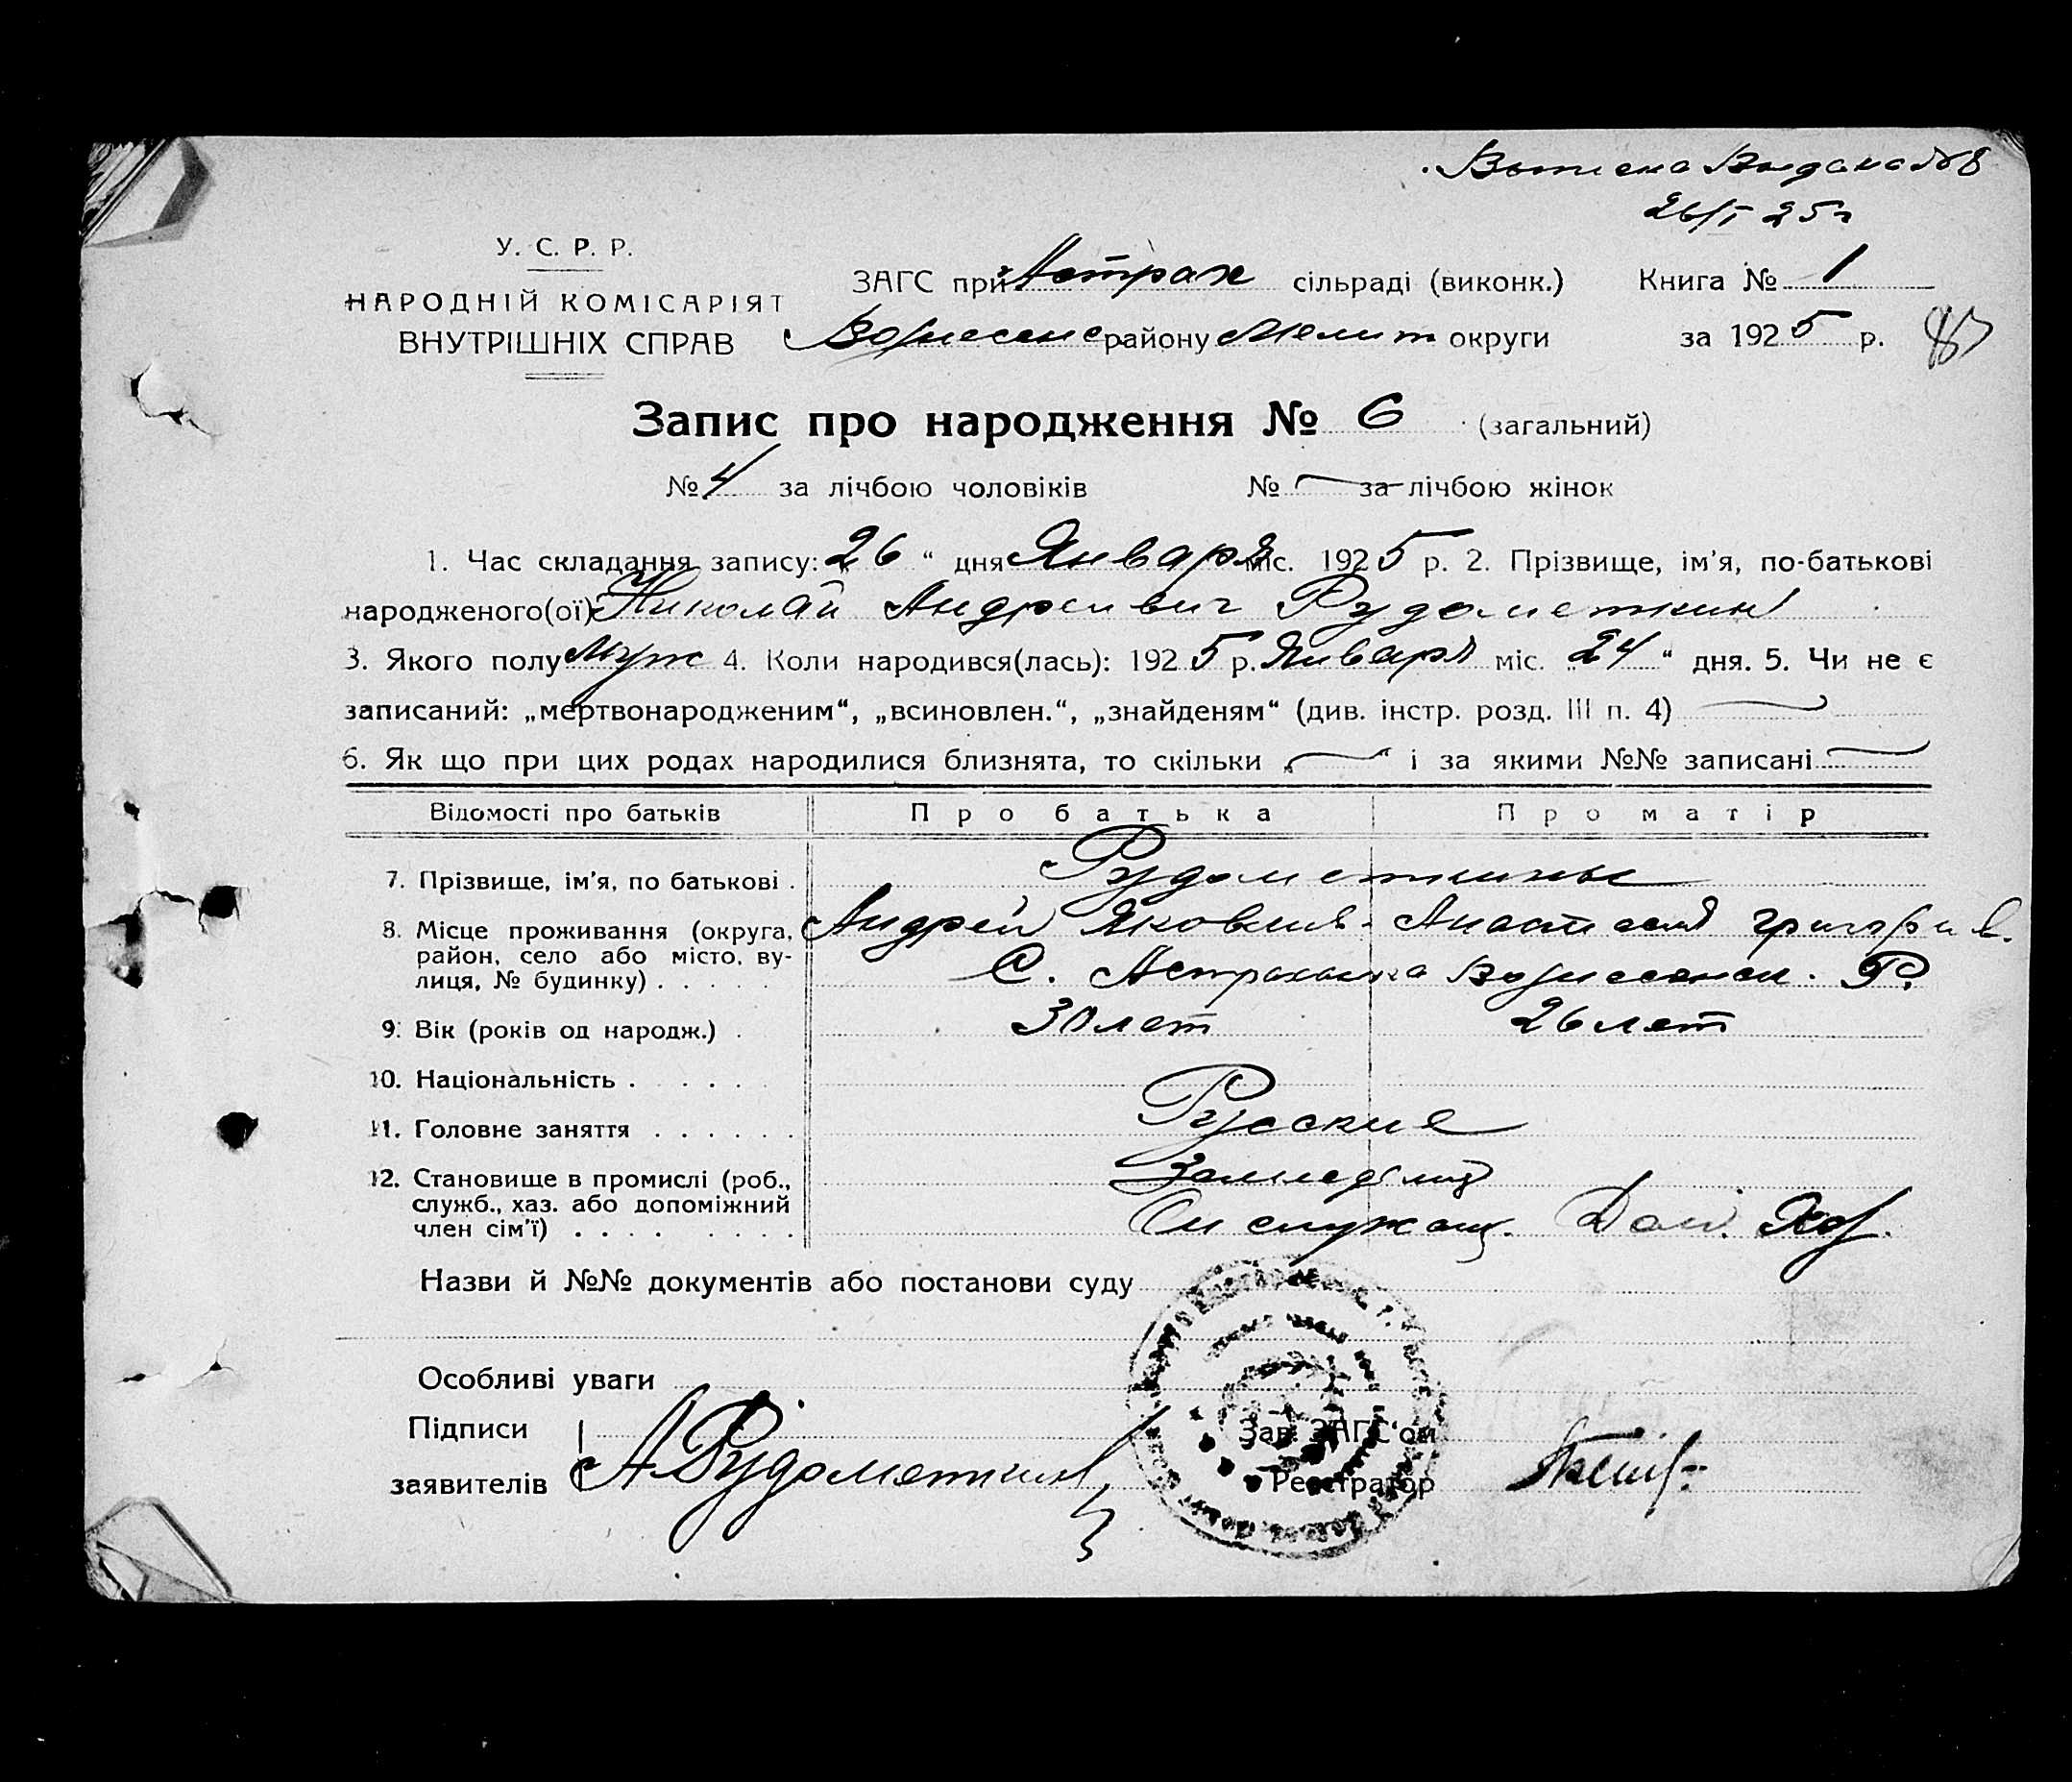 Выписка Выдана №8
26/I 25г
У. С. Р. Р.
НАРОДНІЙ КОМІСАРІЯТ
ВНУТРІШНІХ СПРАВ
ЗАГС при Астрах сільраді (виконк.) Книга № 1
району Мелит округи за 1925 р.
Запис про народження № 6 (загальний)
№ 4 за лічбою чоловіків № — за лічбою жінок
1. Час складання запису: „26“ дня Января міс. 1925 р. 2. Прізвище, ім'я, по-батькові
народженого(ої) Николай Андреевич Рудометкин
3. Якого полу муж 4. Коли народився(лась): 1925 р. Января міс. „24“ дня. 5. Чи не є
записаний: „мертвонародженим“, „всиновлен.“, „знайденям“ (див. інстр. розд. III п. 4) —
6. Як що при цих родах народилися близнята, то скільки „—“ і за якими №№ записані —
Відомості про батьків Про батька Про матір
7. Прізвище, ім'я, по батькові . Рудометкины
8. Місце проживання (округа, Андрей Яковлев. Анастасия Григорьев.
район, село або місто, ву-
лиця, № будинку) . . . . . С. Астраханка Р.
9. Вік (років од народж.) . 30 лет 26 лет
10. Національність . . . . . .
11. Головне заняття . . . . . . Русския
12. Становище в промислі (роб.,
служб., хаз. або допоміжний
член сім'ї) . . . . . . . . служащ. Дом. Хоз.
Назви й №№ документів або постанови суду
Особливі уваги
Підписи Зав. ЗАГС'ом
заявителів А Рудометкин Реєстратор